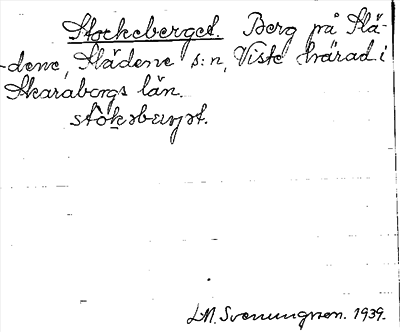 Stockeberget. Berg på Slä-
dene, Slädene s:n, Viste härad i
Skaraborgs län.
L.M. Svenungsson. 1939.